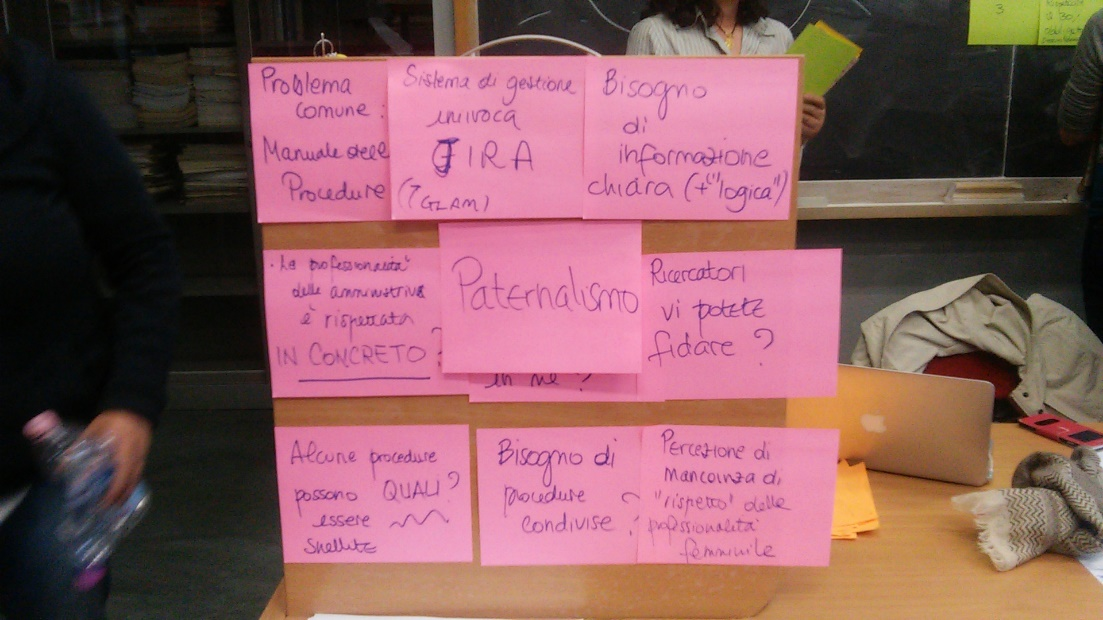 Problema
comune:
Manuale delle
Procedure
Sistema di gestione
univoca
JIRA
(↑GLAM)
Bisogno
di
informazione
chiara (+"logica")
· La professionalità
delle amministrative
è rispettata
IN CONCRETO?
Paternalismo
in me?
Ricercatori
vi potete
fidare?
Alcune procedure
possono QUALI?
essere
snellite
Bisogno di
procedure
condivise?
Percezione di
mancanza di
"rispetto" della
professionalità
femminile
3